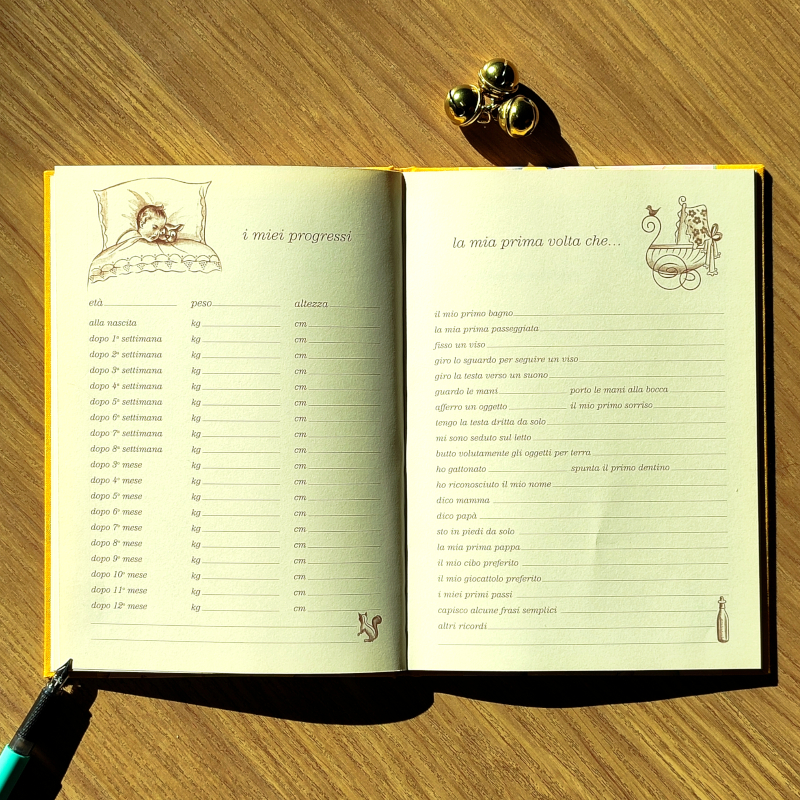 i miei progressi
età peso altezza
alla nascita kg cm
dopo 1ª settimana kg cm
dopo 2ª settimana kg cm
dopo 3ª settimana kg cm
dopo 4ª settimana kg cm
dopo 5ª settimana kg cm
dopo 6ª settimana kg cm
dopo 7ª settimana kg cm
dopo 8ª settimana kg cm
dopo 3° mese kg cm
dopo 4° mese kg cm
dopo 5° mese kg cm
dopo 6° mese kg cm
dopo 7° mese kg cm
dopo 8° mese kg cm
dopo 9° mese kg cm
dopo 10° mese kg cm
dopo 11° mese kg cm
dopo 12° mese kg cm
la mia prima volta che...
il mio primo bagno
la mia prima passeggiata
fisso un viso
giro lo sguardo per seguire un viso
giro la testa verso un suono
guardo le mani porto le mani alla bocca
afferro un oggetto il mio primo sorriso
tengo la testa dritta da solo
mi sono seduto sul letto
butto volutamente gli oggetti per terra
ho gattonato spunta il primo dentino
ho riconosciuto il mio nome
dico mamma
dico papà
sto in piedi da solo
la mia prima pappa
il mio cibo preferito
il mio giocattolo preferito
i miei primi passi
capisco alcune frasi semplici
altri ricordi